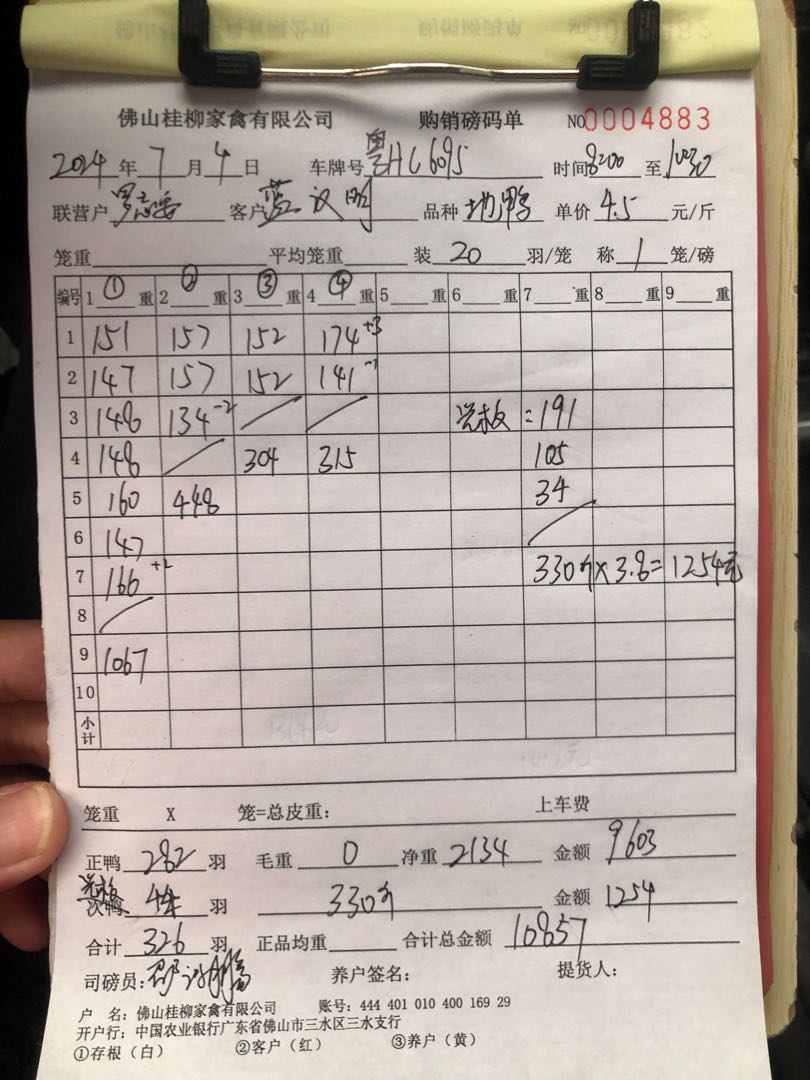 佛山桂柳家禽有限公司 购销磅码单 NO 0004883
2024 年 7 月 4 日 车牌号 粤HC6095 时间 8:00 至 10:30
联营户 罗志 客户 蓝汉明 品种 地鸭 单价 4.5 元/斤
笼重 平均笼重 装 20 羽/笼 称 1 笼/磅
编号 1 ① 重 2 ② 重 3 ③ 重 4 ④ 重 5 重 6 重 7 重 8 重 9 重
1 151 157 152 174 +3
2 147 157 152 141 -1
3 148 134 -2 板 = 191
4 148 304 315 105
5 160 448 34
6 147
7 166 +2 330斤×3.8=1254元
8
9 1067
10
小计
笼重 X 笼=总皮重: 上车费
正鸭 282 羽 毛重 0 净重 2134 金额 9603
板
次鸭 44 羽 330斤 金额 1254
合计 326 羽 正品均重 合计总金额 10857
司磅员: 养户签名: 提货人:
户 名: 佛山桂柳家禽有限公司 账号: 444 401 010 400 169 29
开户行: 中国农业银行广东省佛山市三水区三水支行
①存根（白） ②客户（红） ③养户（黄）